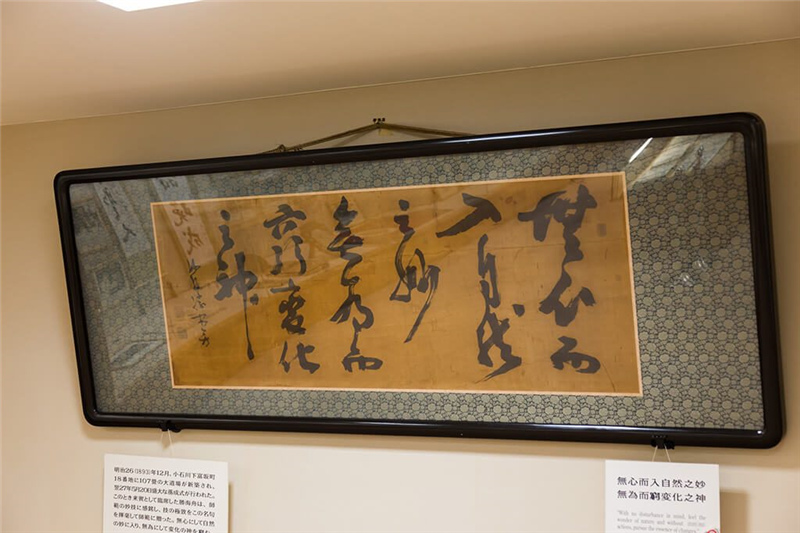 無心而
入自然
之妙
無為而
窮變化
之神
明治26(1893)年12月、小石川下富坂町
18番地に107畳の大道場が新築され、
翌27年5月20日盛大な落成式が行われた。
このとき来賓として臨席した勝海舟は、師
範の妙技に感銘し、技の極致をこの名句
を揮毫して師範に贈った。無心にして自然
の妙に入り、無為にして変化の神を
無心而入自然之妙
無為而窮変化之神
"With no disturbance in mind, feel the
wonder of nature and without
actions, pursue the essence of changes."